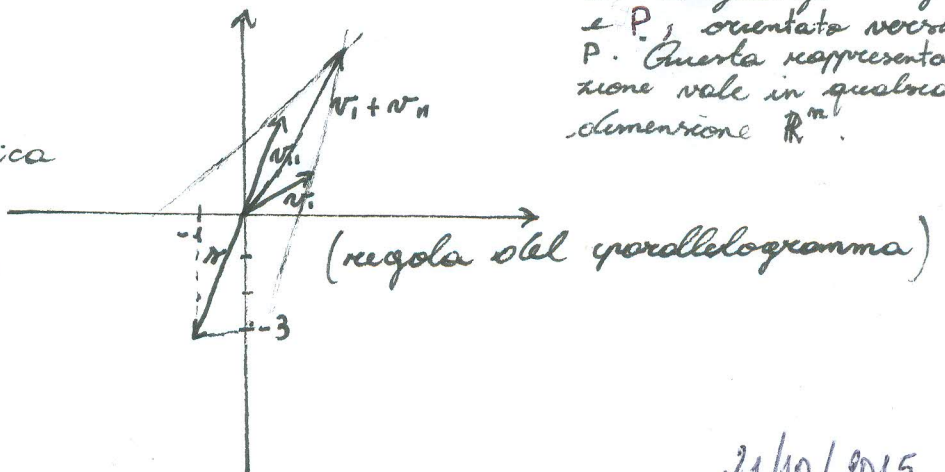 e P, orientato verso
P. Questa rappresenta
zione vale in qualsia
dimensione ℝⁿ.
v₁ + vₙ
ica
v₁
-1
(regola del parallelogramma)
-3
21/10/2015